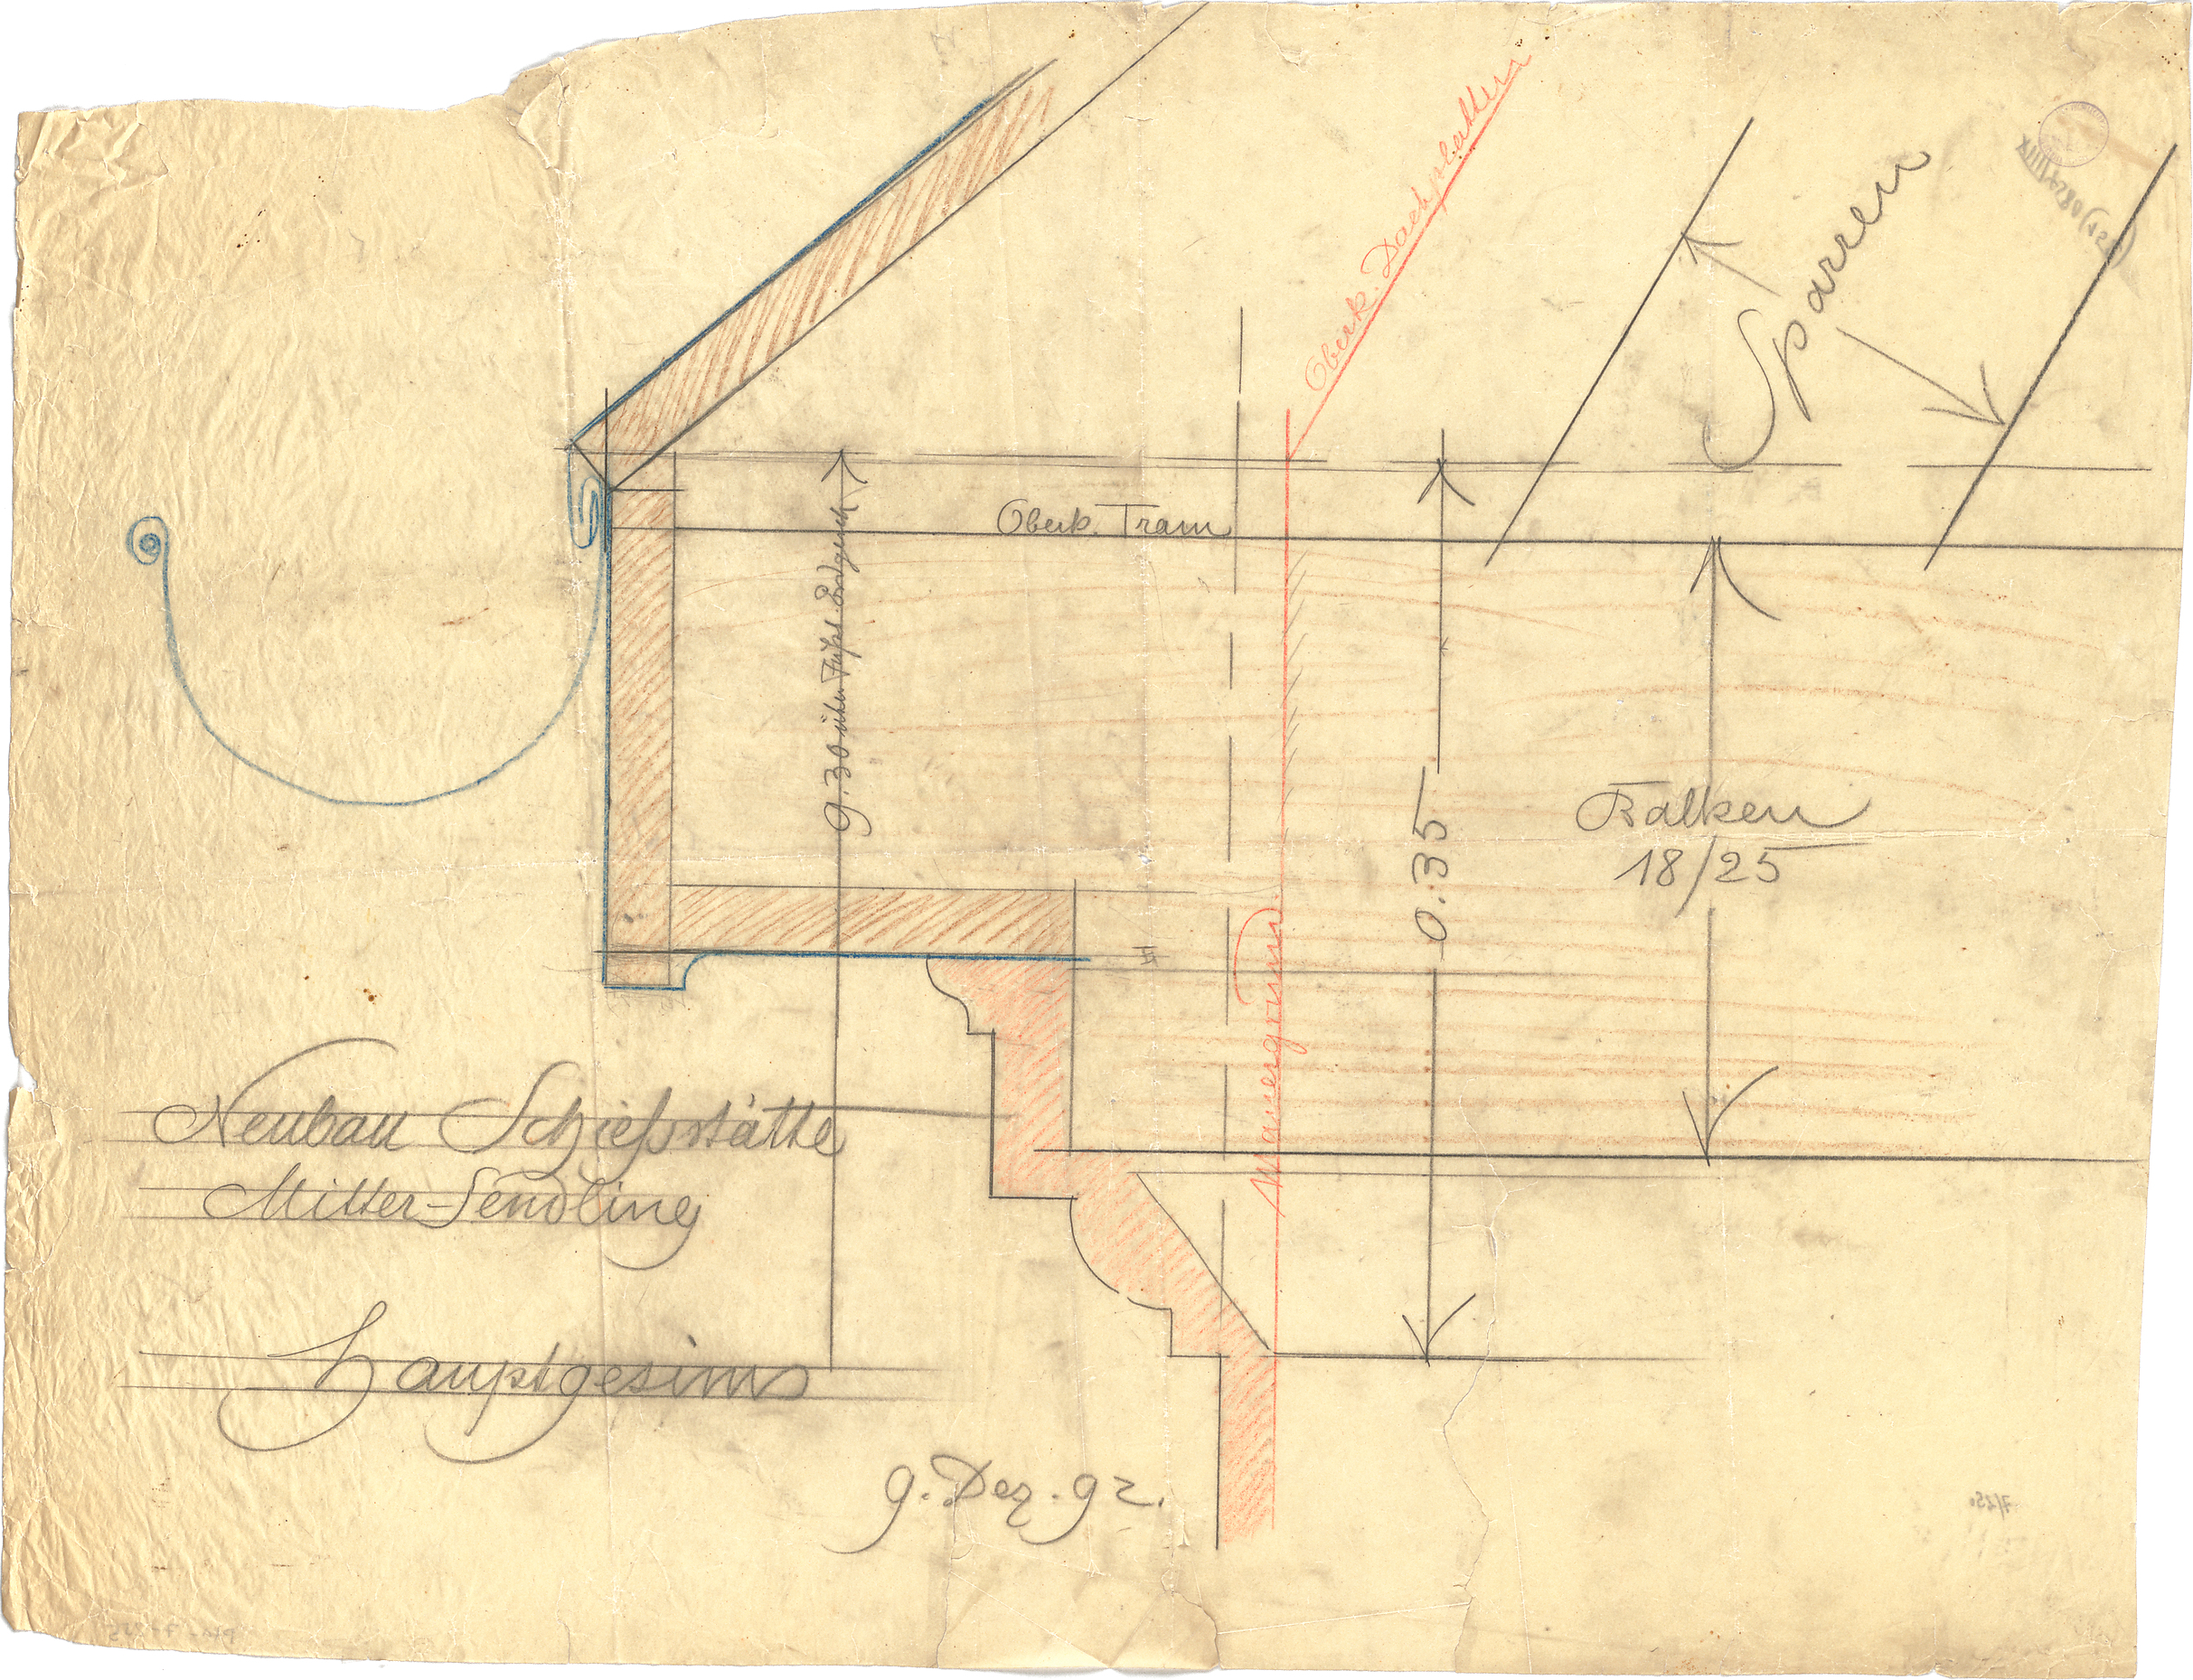 Oberk. Dachplatten
Sparren
Oberk. Tram
9.30 über
0.35
Balken
18/25
Mauergrund
Neubau Schießstätte
Mitter-Sendling
Hauptgesims
9. Dez. 92.